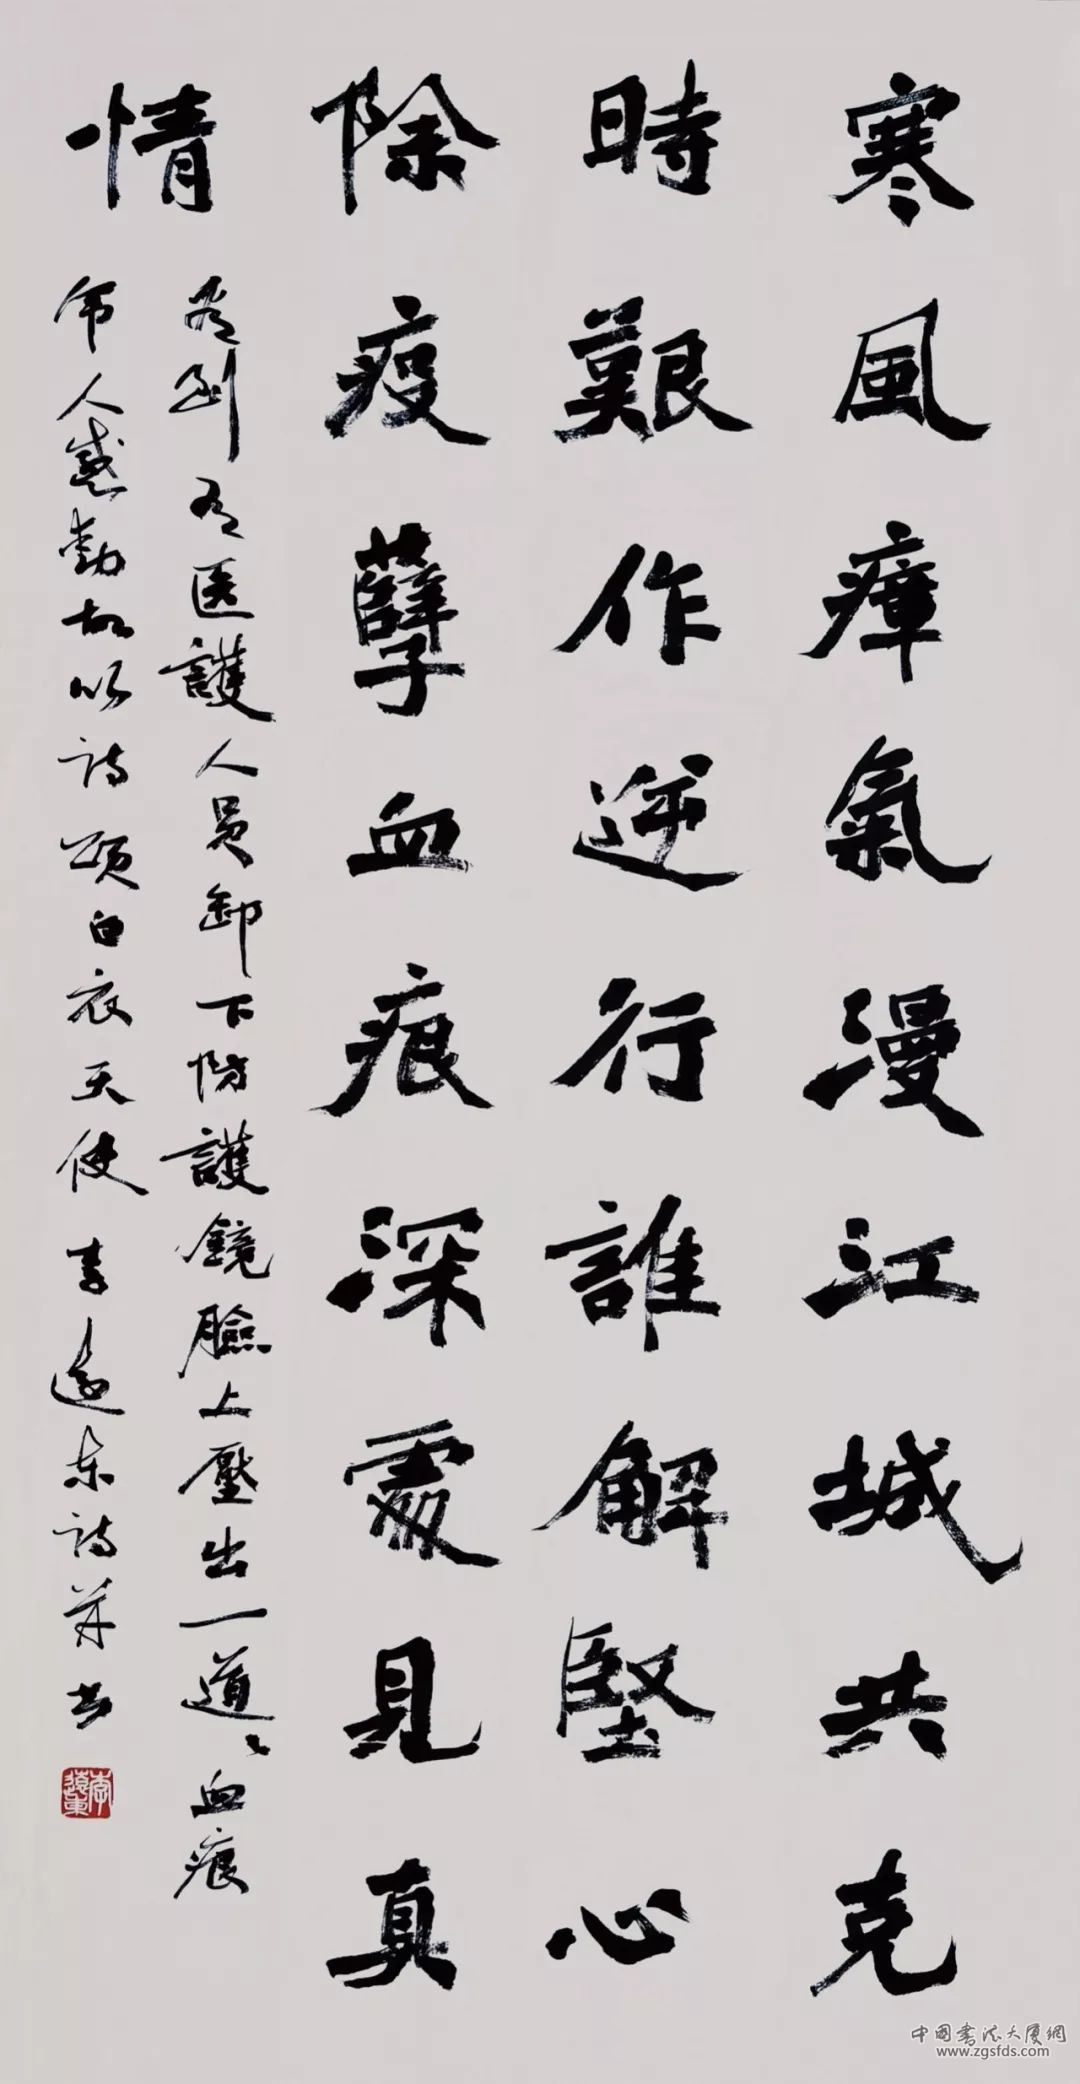 寒風瘴氣漫江城共克
時艱作逆行誰解堅心
除疫孽血痕深處見真
情
看到有医護人員卸下防護鏡臉上壓出一道〻血痕
令人感動故以詩頌白衣天使 李遠東詩並書
李遠東
中國書法大厦網
www.zgsfds.com